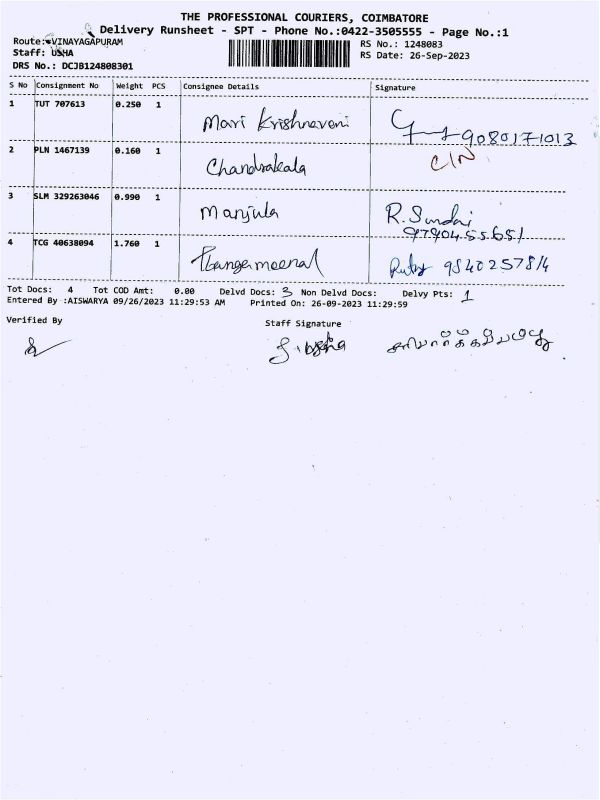 THE PROFESSIONAL COURIERS, COIMBATORE
Delivery Runsheet - SPT - Phone No.:0422-3505555 - Page No.:1
Route: VINAYAGAPURAM
RS No.: 1248083
Staff: USHA
RS Date: 26-Sep-2023
DRS No.: DCJB124808301
S No Consignment No Weight PCS Consignee Details Signature
1 TUT 707613 0.250 1 Mari Krishnaveni 9080171013
2 PLN 1467139 0.160 1 Chandrakala CIN
3 SLM 329263046 0.990 1 Manjula R. Sundai
9790455651
4 TCG 40638094 1.760 1 Thangameenal Ruby 9840257814
Tot Docs: 4 Tot COD Amt: 0.00 Delvd Docs: 3 Non Delvd Docs: Delvy Pts: 1
Entered By :AISWARYA 09/26/2023 11:29:53 AM Printed On: 26-09-2023 11:29:59
Verified By Staff Signature
J. usha சரிபார்க்கப்பட்டது